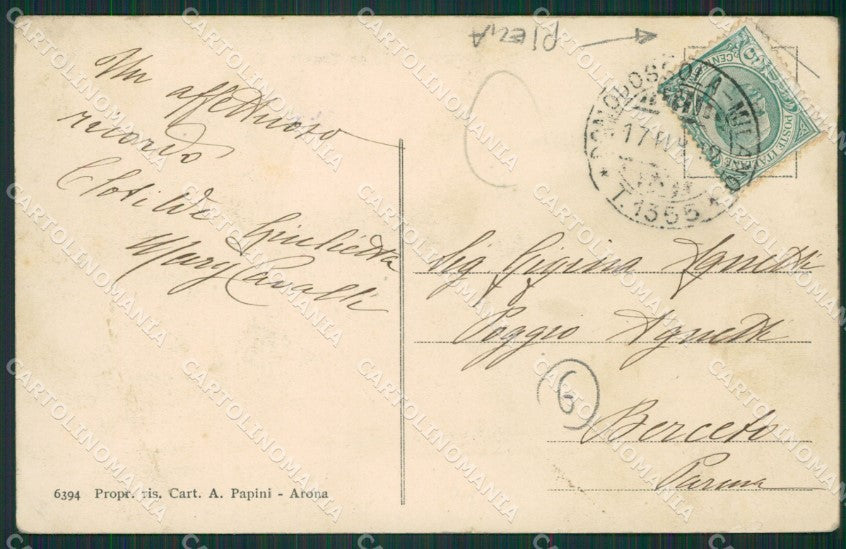 PIEGA
Un affettuoso
ricordo
Clotilde Giulietta
Mary Cavalli
DOMODOSSOLA MILANO
17
T.1355
5
CENT
POSTE ITALIANE
Sig Gigina Agnetti
Poggio Agnetti
Berceto
Parma
6
6394 Propr. ris. Cart. A. Papini - Arona
CARTOLINOMANIA